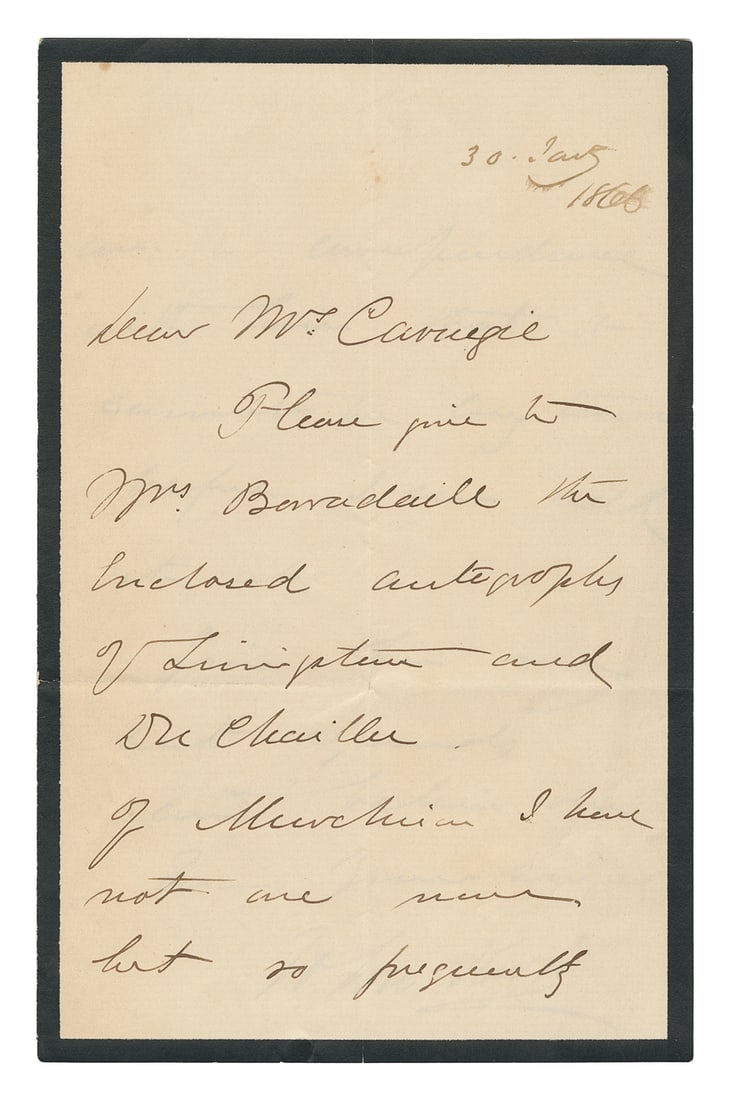 30. Jany
1866
Dear Mrs. Carnegie
Please give to
Mrs. Borradaille the
Enclosed autographs
of Livingstone and
Du Chaillu.
of Murchison I have
not one now
but so frequently